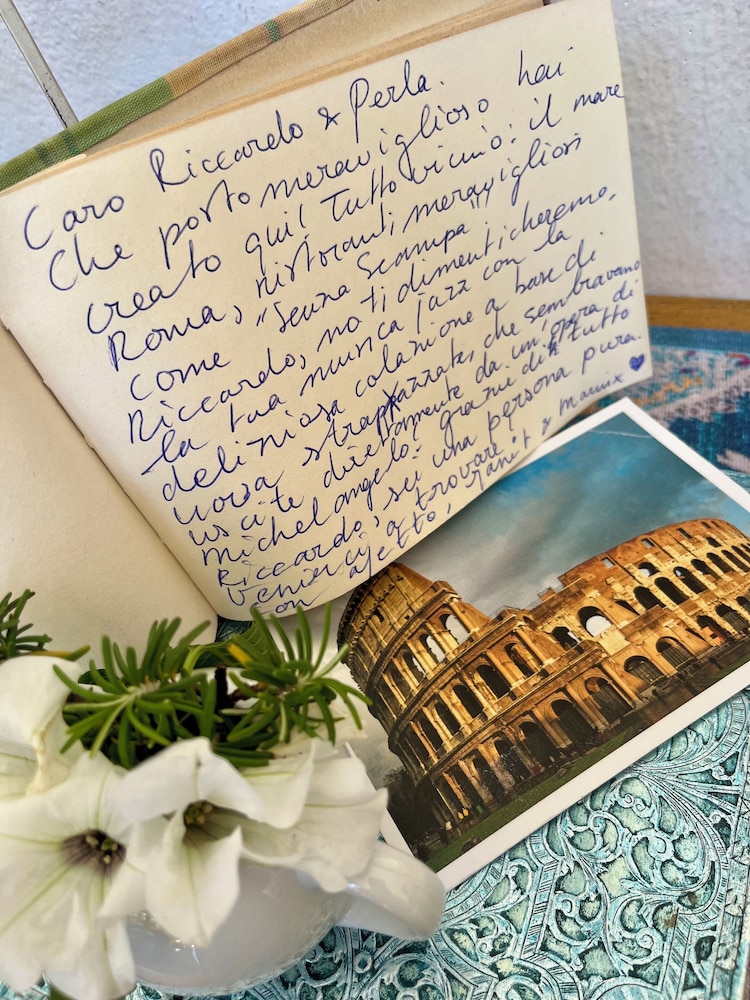 Caro Riccardo & Perla.
Che posto meraviglioso hai
creato qui! Tutto vicino: il mare
Roma, ristoranti meravigliosi
come "Senza Scampa"
Riccardo, no ti dimenticheremo,
la tua musica jazz con la
deliziosa colazione a base di
uova strappazzate, che sembravano
uscite direttamente da un'opera di
Michelangelo, grazie di tutto
Riccardo, sei una persona pura.
venirci a trovare
con afetto, &